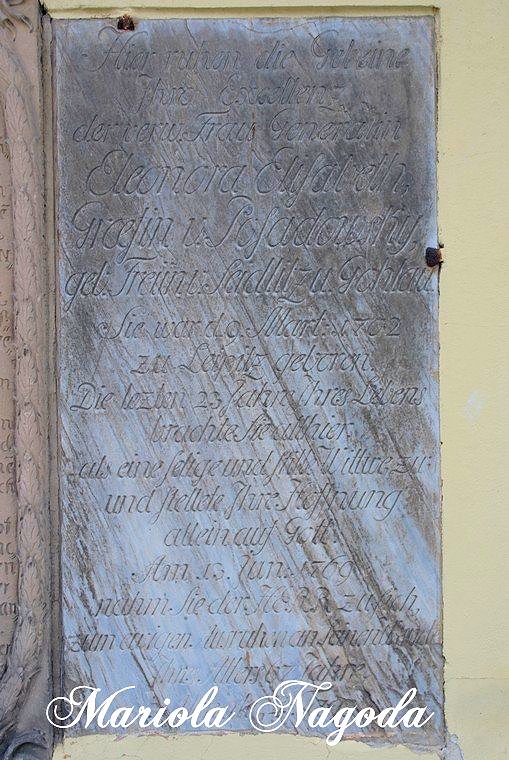 Hier ruhen die Gebeine
Ihro Excellenz
der verw. Frau Generalin
Eleonora Elisabeth,
Græfin v. Posadowsky,
geb. Freÿin v. Seidlitz u. Gohlau.
Sie war d. 9. Mart. 1702
zu Lampitz geboren.
Die lezten 23 Jahre Ihres Lebens
brachte Sie allhier
als eine selige und stille Wittwe zu
und stellete Ihre Hoffnung
allein auf Gott.
Am 13. Jun. 1769
nahm Sie der HERR zu sich,
zum ewigen
Ihr Alter 67 Jahre
Mariola Nagoda